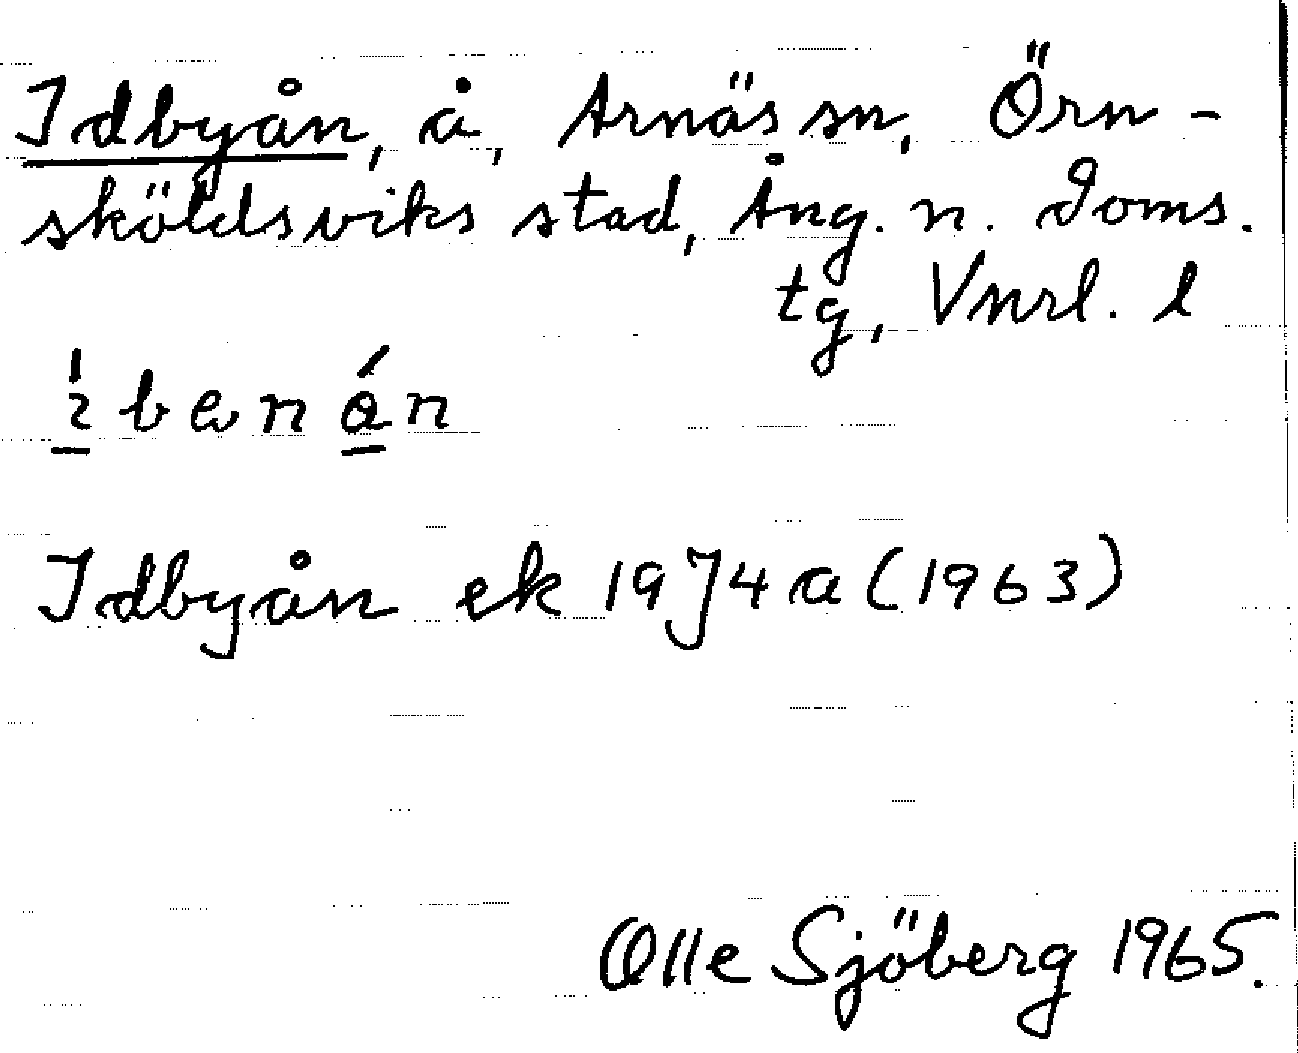 Idbyån, å, Arnäs sn, Örn-
sköldsviks stad, Ång. n. doms.
tg, Vnrl. l
ibenån
Idbyån ek 19J4a(1963)
Olle Sjöberg 1965.